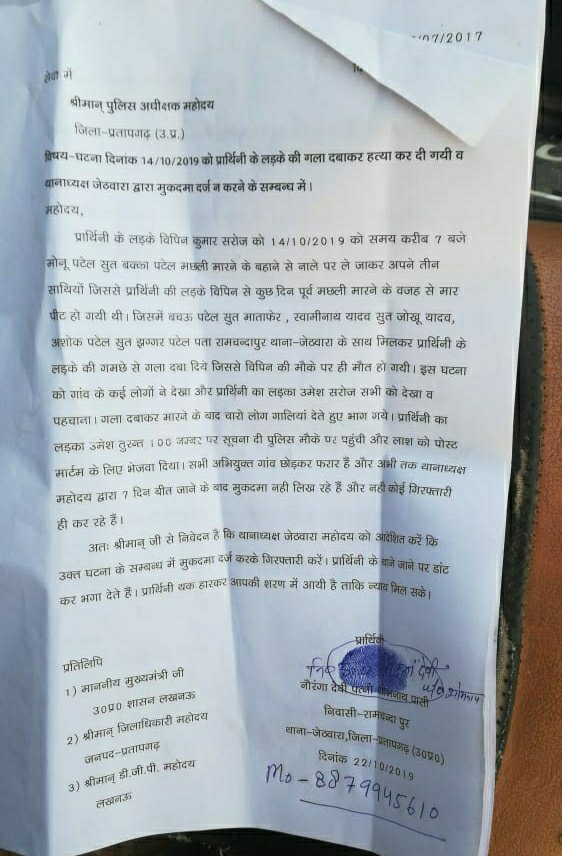 /07/2017
सेवा में
श्रीमान् पुलिस अधीक्षक महोदय
जिला-प्रतापगढ़ (उ.प्र.)
विषय-घटना दिनांक 14/10/2019 को प्रार्थिनी के लड़के की गला दबाकर हत्या कर दी गयी व
थानाध्यक्ष जेठवारा द्वारा मुकदमा दर्ज न करने के सम्बन्ध में।
महोदय,
प्रार्थिनी के लड़के विपिन कुमार सरोज को 14/10/2019 को समय करीब 7 बजे
मोनू पटेल सुत बक्ला पटेल मछली मारने के बहाने से नाले पर ले जाकर अपने तीन
साथियों जिससे प्रार्थिनी की लड़के विपिन से कुछ दिन पूर्व मछली मारने के वजह से मार
पीट हो गयी थी। जिसमें बचऊ पटेल सुत माताफेर, स्वामीनाथ यादव सुत जोखू यादव,
अशोक पटेल सुत झग्गर पटेल पता रामचन्दापुर थाना-जेठवारा के साथ मिलकर प्रार्थिनी के
लड़के की गमछे से गला दबा दिये जिससे विपिन की मौके पर ही मौत हो गयी। इस घटना
को गांव के कई लोगों ने देखा और प्रार्थिनी का लड़का उमेश सरोज सभी को देखा व
पहचाना। गला दबाकर मारने के बाद चारो लोग गालियां देते हुए भाग गये। प्रार्थिनी का
लड़का उमेश तुरन्त 100 नम्बर पर सूचना दी पुलिस मौके पर पहुंची और लाश को पोस्ट
मार्टम के लिए भेजवा दिया। सभी अभियुक्त गांव छोड़कर फरार हैं और अभी तक थानाध्यक्ष
महोदय द्वारा 7 दिन बीत जाने के बाद मुकदमा नही लिख रहे हैं और नही कोई गिरफ्तारी
ही कर रहे हैं।
अतः श्रीमान् जी से निवेदन है कि थानाध्यक्ष जेठवारा महोदय को आदेशित करें कि
उक्त घटना के सम्बन्ध में मुकदमा दर्ज करके गिरफ्तारी करें। प्रार्थिनी के थाने जाने पर डांट
कर भगा देते हैं। प्रार्थिनी थक हारकर आपकी शरण में आयी है ताकि न्याय मिल सके।
प्रार्थिनी
देवी
नौरंगा देवी पत्नी
निवासी-रामचन्दा पुर
थाना-जेठवारा,जिला-प्रतापगढ़ (उ0प्र0)
दिनांक 22/10/2019
Mo - 8879945610
प्रतिलिपि
1) माननीय मुख्यमंत्री जी
उ0प्र0 शासन लखनऊ
2) श्रीमान् जिलाधिकारी महोदय
जनपद-प्रतापगढ़
3) श्रीमान् डी.जी.पी. महोदय
लखनऊ